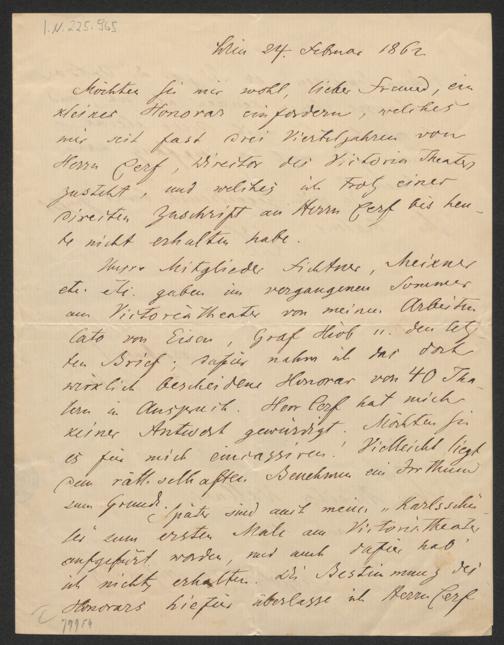 I.N. 225.965
Wien 24. Februar 1862
Möchten Sie mir wohl, lieber Freund, ein
kleines Honorar einfordern, welches
mir seit fast drei Vierteljahren von
Herrn Cerf, Direktor des Victoria Theaters
zusteht, und welches ich trotz einer
direkten Zuschrift an Herrn Cerf bis heu-
te nicht erhalten habe.
Unsre Mitglieder Fichtner, Meixner
etc. etc. gaben im vergangenen Sommer
am Victoriatheater von meinen Arbeiten
Cato von Eisen, Graf Hiob u. den letz
ten Brief; dafür nahm ich das doch
wirklich bescheidene Honorar von 40 Tha-
lern in Anspruch. Herr Cerf hat mich
keiner Antwort gewürdigt. Möchten Sie
es für mich eincassiren! Vielleicht liegt
dem räthselhaften Benehmen ein Irrthum
zum Grunde.
Später sind auch meine „Karlsschü-
ler zum ersten Male am Victoriatheater
aufgeführt worden, und auch dafür hab'
ich nichts erhalten. Die Bestimmung des
Honorars hiefür überlasse ich Herrn Cerf